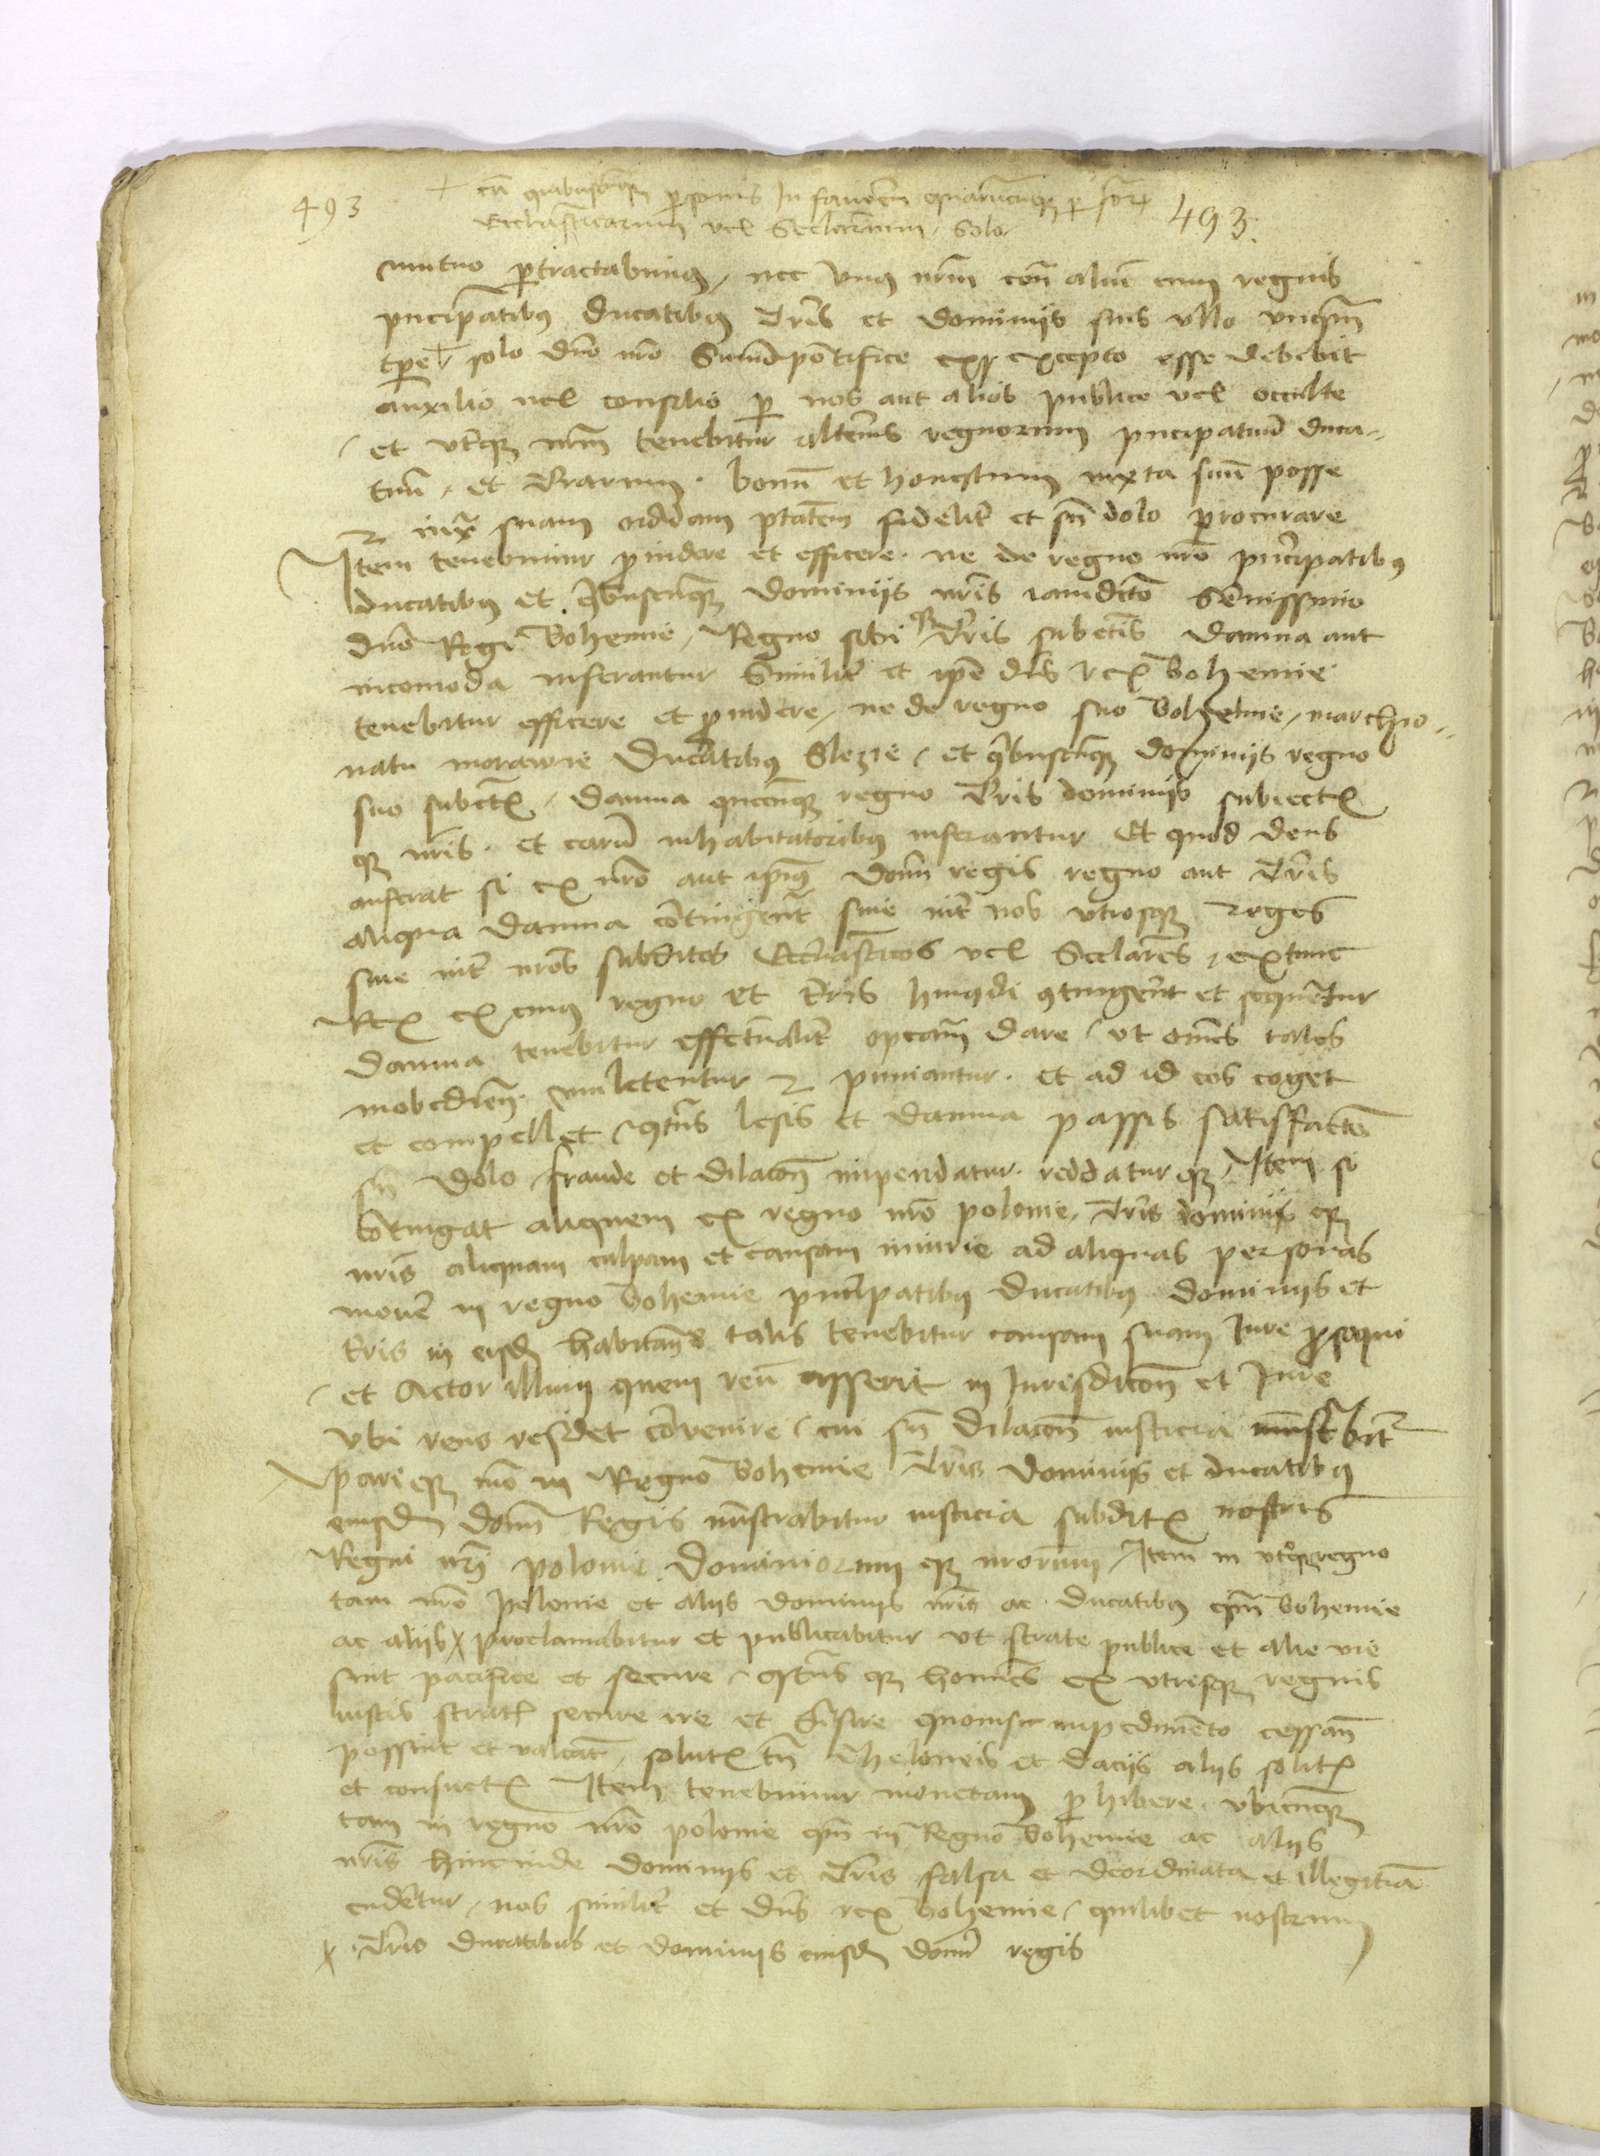 493
493.
Ecclesiasticarum vel Seclarium Solo
mutuo pertractabimus, nec vnus nrm con alium cum regnis
pncipatibus ducatibus Tris et dominijs suis vllo vnquam
tpe solo dno nro Summo pontifice excepto esse debebit
auxilio vel consilio per nos aut alios publice vel occulte
et vterque nrm tenebitur alterius regnorum pncipatuum duca-
tuum et Trarum bonum et honestum iuxta suum posse
iuxta suam ptatem fideliter et sn dolo procurare
Item tenebimur prouidere et efficere ne de regno nro pncipatibus
ducatibus et quibuscunque dominijs nris iamdicto Serenissimo
dno Regi Bohemie, Regno sibi Tris subiectis damna aut
incomoda inferantur Similiter et ipse dns rex Bohemie
tenebitur efficere et prouidere, ne de regno suo Bohemie, marchio-
natu morawie Ducatibus Slezie, et quibuscunque dominijs regno
suo subiectis, damna quecunque regno Tris dominijs subiectis
que nris et earum inhabitatoribus inferantur Et quod deus
auferat si ex nro aut ipsius domini regis regno aut Tris
aliqua damna contingerent siue inter nos vtrosque reges
siue inter nros subditos Ecclesiasticos vel Seclares, extunc
Rex ex cuius regno et Tris huiusmodi contingerent et sequerentur
damna tenebitur effectualiter operam dare, vt omnes tales
inobedien. mulctentur et puniantur et ad id eos coget
et compellet, lesis et damna passis satisfactio
sn dolo fraude et dilacone impendatur reddaturque, Item si
contingat aliquem ex regno nro polonie, Tris dominijs que
nris aliquam culpam et causam iniurie ad aliquas personas
mouere in regno Bohemie pncipatibus ducatibus dominijs et
Tris in eisdem habitantes talis tenebitur causam suam Jure prosequi
et Actor illum quem reum asserit in Jurisdicone et Jure
Vbi reus residet conuenire, cui sn dilacone iusticia ministrabitur
Parique modo in Regno Bohemie Tris Dominijs et ducatibus
eiusdem domini Regis ministrabitur iusticia subditis nostris
Regni nri polonie Dominiorumque nrorum, Item in vtroque regno
tam nro Polonie et alijs dominijs nris ac ducatibus quam Bohemie
ac alijs proclamabitur et publicabitur vt strate publice et alie vie
sint pacifice et secure, que homines ex vtrisque regnis
iustis stratis secure ire et transire quouis impedimento cessante
possint et valeant, solutis tn theloneis et dacijs alijs solitis
et consuetis Item tenebimur monetam prohibere, vbicunque
tam in regno nro polonie quam in Regno Bohemie ac alijs
nris hincinde dominijs et Tris falsa et deordinata et illegitima
cuderetur, nos similiter et dns rex Bohemie, quilibet nostrum
Tris ducatibus et dominijs eiusdem domini regis